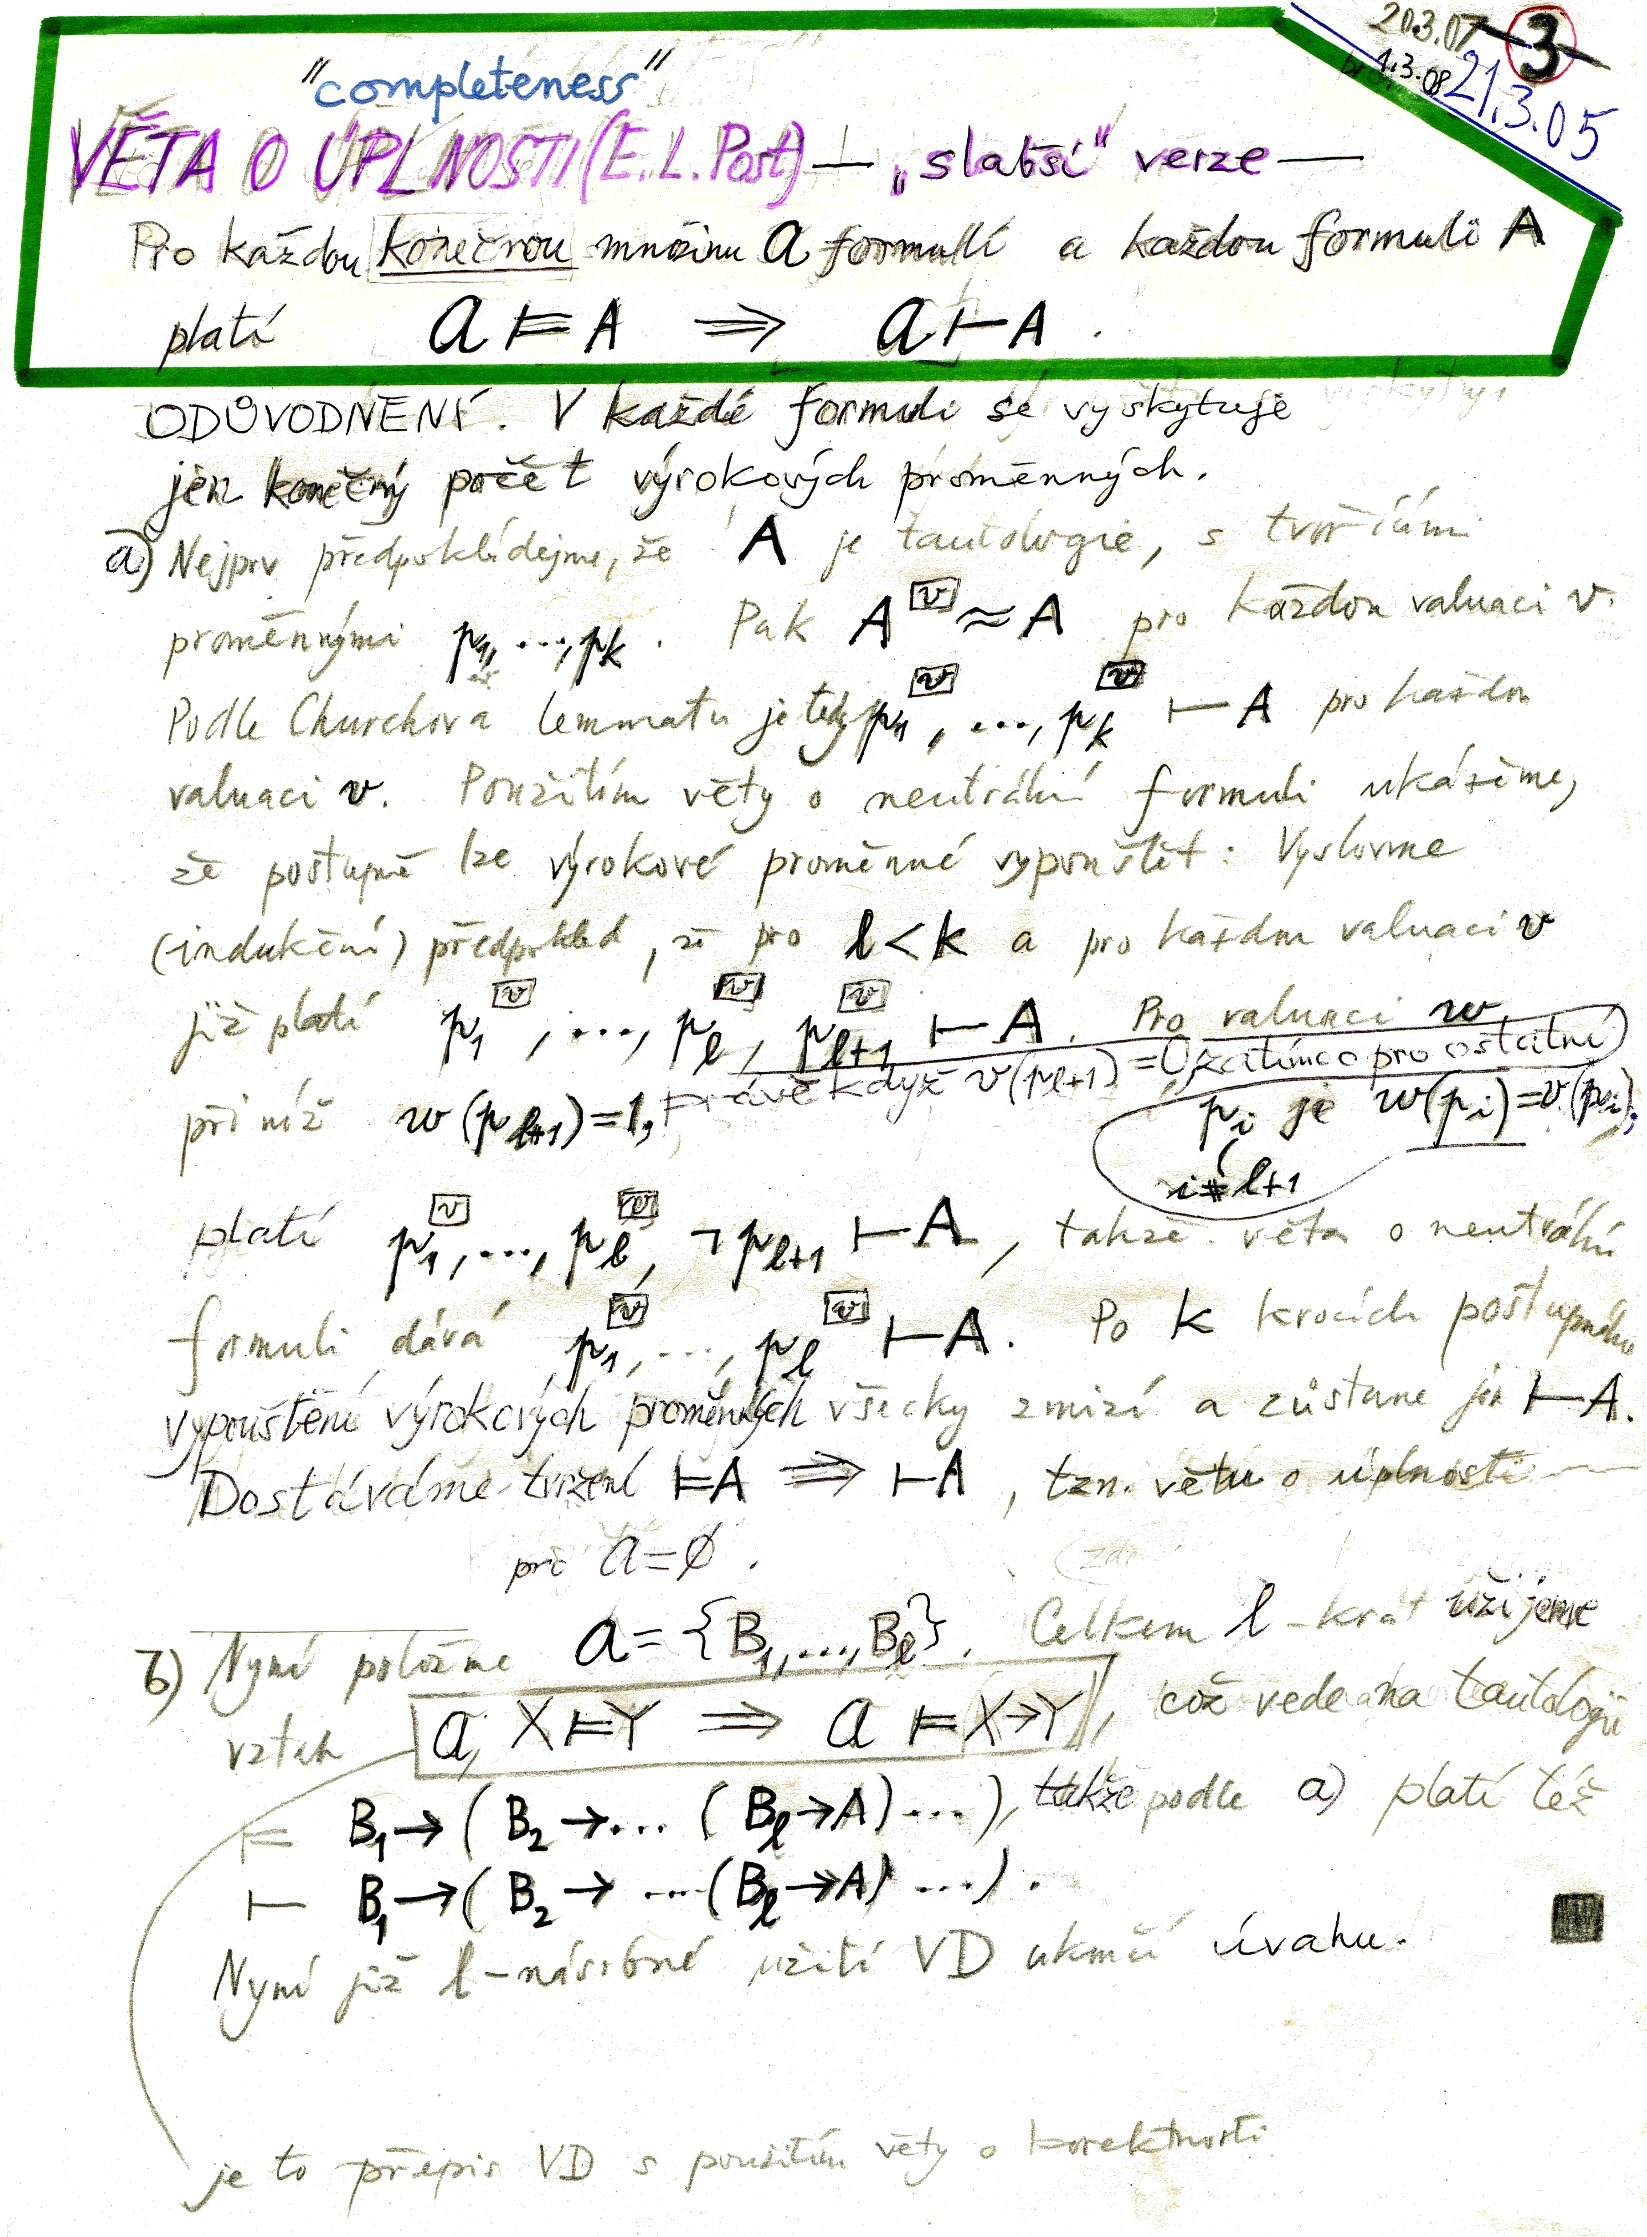 20.3.07 3
1.3.08 21.3.05
"completeness"
VĚTA O ÚPLNOSTI (E. L. Post) — „slabší" verze —
Pro každou konečnou množinu a formulí a každou formuli A
platí a ⊨ A ⟹ a ⊢ A .
ODŮVODNĚNÍ. V každé formuli se vyskytuje
jen konečný počet výrokových proměnných.
a) Nejprv předpokládejme, že A je tautologie, s tvořícími
proměnnými p₁, ..., pₖ . Pak A^[v] ≈ A pro každou valuaci v.
Podle Churchova lemmatu je tedy p₁^[v], ..., pₖ^[v] ⊢ A pro každou
valuaci v. Použitím věty o neutrální formuli ukážeme,
že postupně lze výrokové proměnné vypouštět: Vyslovme
(indukční) předpoklad, že pro l < k a pro každou valuaci v
již platí p₁^[v], ..., pₗ^[v], pₗ₊₁^[v] ⊢ A. Pro valuaci w,
při níž w(pₗ₊₁)=1, právě když v(pₗ₊₁)=0, zatímco pro ostatní
pᵢ je w(pᵢ)=v(pᵢ);
i≠l+1
platí p₁^[v], ..., pₗ^[v], ¬pₗ₊₁ ⊢ A, takže věta o neutrální
formuli dává p₁^[v], ..., pₗ^[v] ⊢ A. Po k krocích postupného
vypouštění výrokových proměnných všecky zmizí a zůstane jen ⊢ A.
Dostáváme tvrzení ⊨A ⟹ ⊢A, tzn. větu o úplnosti
při a=∅ .
b) Nyní položme a = {B₁, ..., Bₗ}. Celkem l-krát užijeme
vztah a, X ⊨ Y ⟹ a ⊨ X→Y, což vede na tautologii
⊨ B₁→(B₂→...(Bₗ→A)...), takže podle a) platí též
⊢ B₁→(B₂→ ...(Bₗ→A) ...) .
Nyní již l-násobné užití VD ukončí úvahu.
je to přepis VD s použitím věty o korektnosti